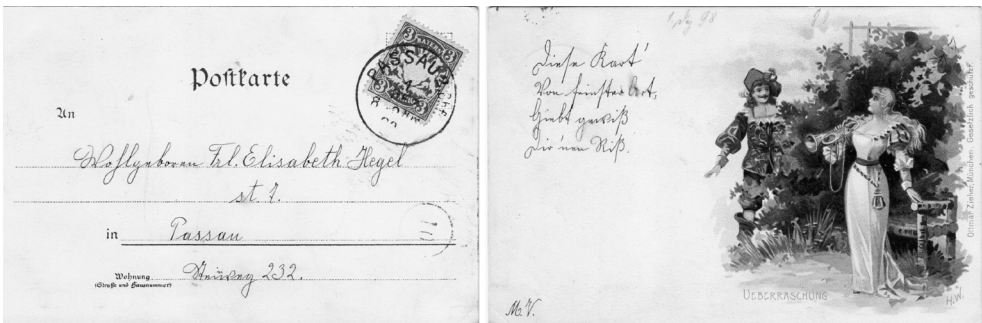 Postkarte
3 BAYERN 3
PASSAU
An
Wohlgeboren Frl. Elisabeth Hegel
st. 1.
in Passau
Wohnung
(Straße und Hausnummer)
232.
98
Diese Kart'
Von feinster Art,
Giebt gewiß
Dir nen Riß.
M. V.
UEBERRASCHUNG
H.W.
Ottmar Zieher, München. Gesetzlich geschützt.